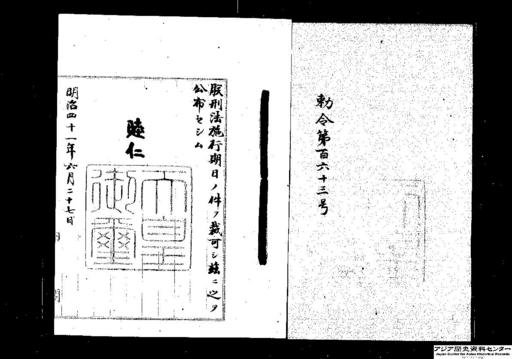 勅令第百六十三号
朕刑法施行期日ノ件ヲ裁可シ茲ニ之ヲ
公布セシム
睦仁
天皇御璽
明治四十一年六月二十七日
アジア歴史資料センター
Japan Center for Asian Historical Records